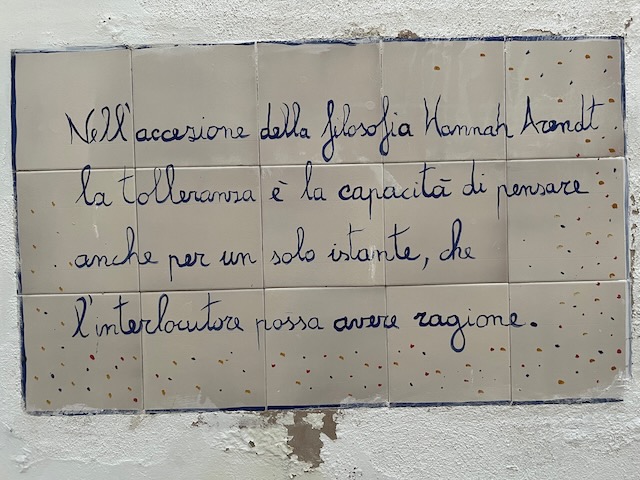 Nell'accezione della filosofia Hannah Arendt
la tolleranza è la capacità di pensare
anche per un solo istante, che
l'interlocutore possa avere ragione.